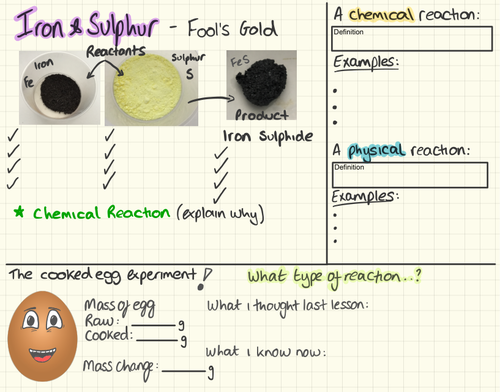 Iron & Sulphur - Fool's Gold
Reactants
Iron
Fe
Sulphur
S
FeS
Product
Iron Sulphide
✓
✓
✓
✓
✓
✓
✓
✓
✓
✓
✓
✓
★ Chemical Reaction (explain why)
A chemical reaction:
Definition
Examples:
•
•
•
A physical reaction:
Definition
Examples:
•
•
•
The cooked egg experiment!
What type of reaction..?
Mass of egg
Raw: ____ g
Cooked: ____ g
Mass Change: ____ g
What I thought last lesson:
What I know now: